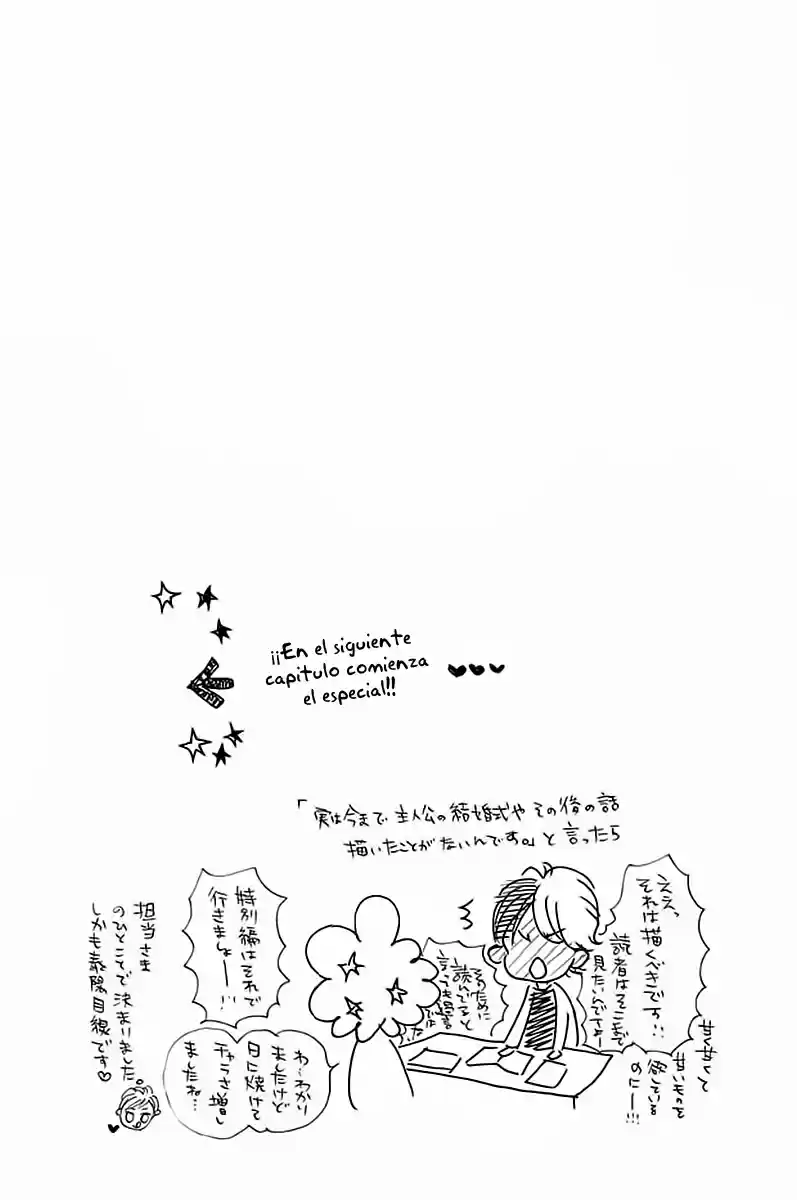 ¡¡En el siguiente
capitulo comienza
el especial!!
「実は今まで主人公の結婚式やその後の話
描いたことがないんです。」と言ったら
ええ、
それは描くべきです!!
読者はそこまで
見たいんですよー
甘くて
甘いものを
欲している
のにー!!!
そのために
読んでると
言っても過言
では
特別編はそれで
行きましょー!!
わ…わかり
ましたけど
日に焼けて
チャラさ増し
ましたね…
担当さま
のひとことで決まりました
しかも義隆目線です♡